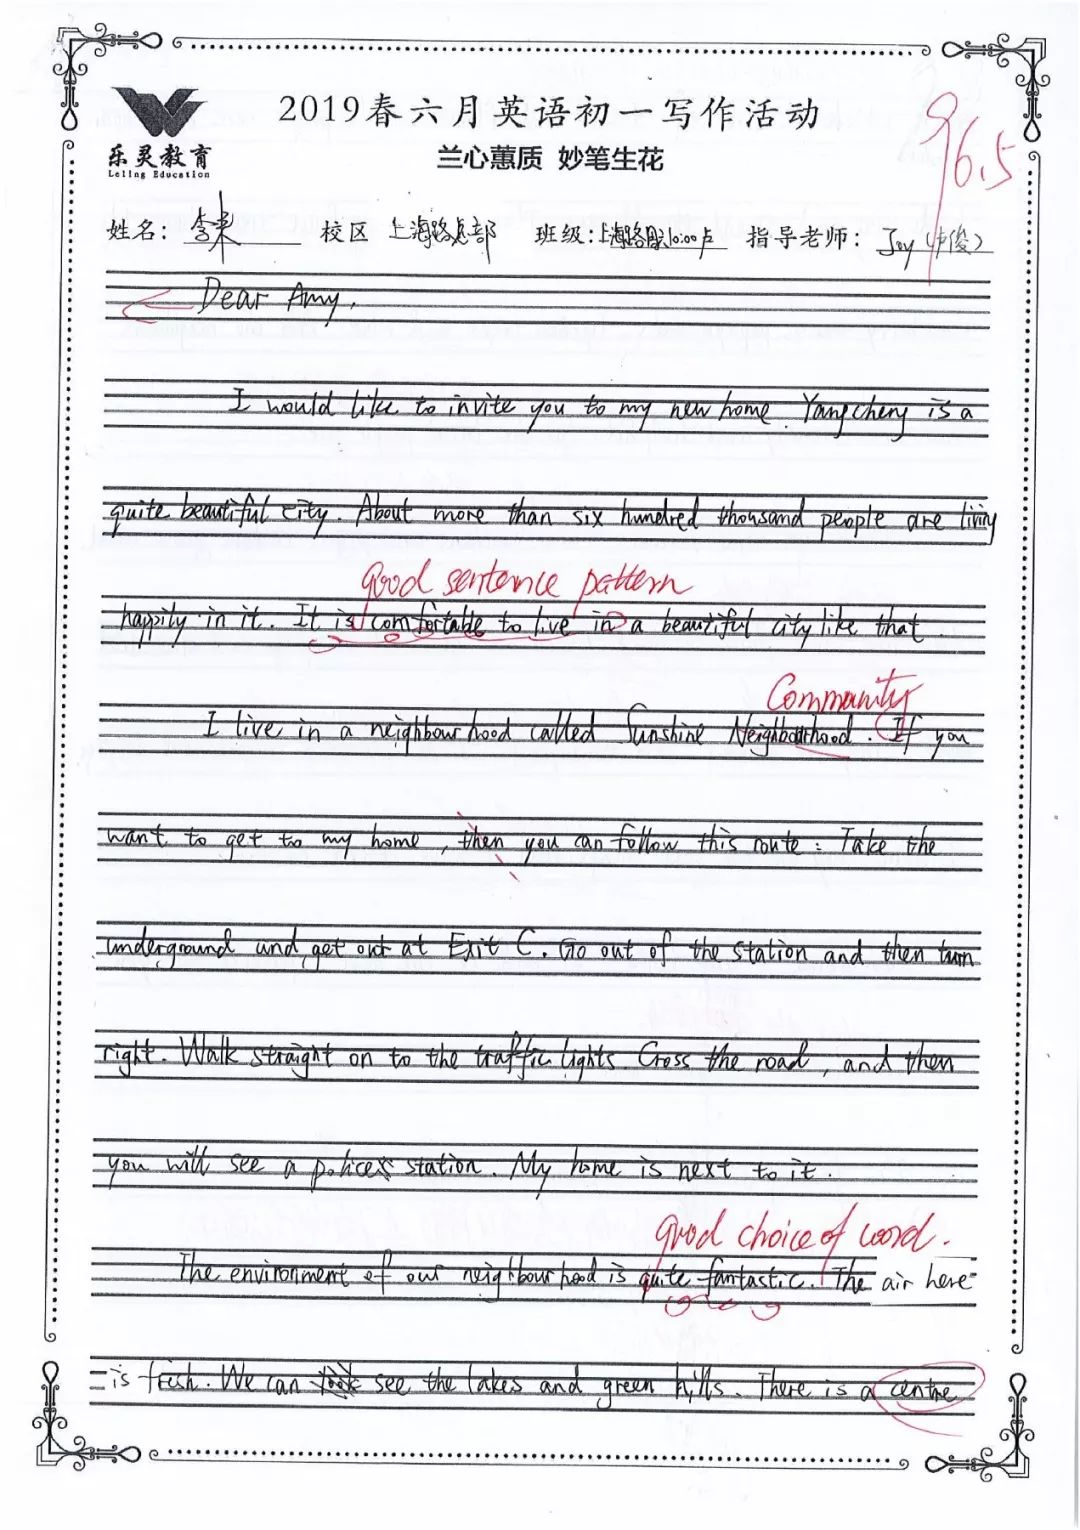 2019春六月英语初一写作活动
兰心蕙质 妙笔生花
乐灵教育
Leling Education
96.5
姓名: 李来 校区 上海路总部 班级: 上海路10:00点 指导老师: Joy (俊)
Dear Amy,
I would like to invite you to my new home. Yangcheng is a
quite beautiful city. About more than six hundred thousand people are living
good sentence pattern
happily in it. It is comfortable to live in a beautiful city like that.
Community
I live in a neighbourhood called Sunshine Neighbourhood. If you
want to get to my home, then you can follow this route: Take the
underground and get out at Exit C. Go out of the station and then turn
right. Walk straight on to the traffic lights. Cross the road, and then
you will see a police station. My home is next to it.
good choice of word.
The environment of our neighbourhood is quite fantastic. The air here
is fresh. We can see the lakes and green hills. There is a centre